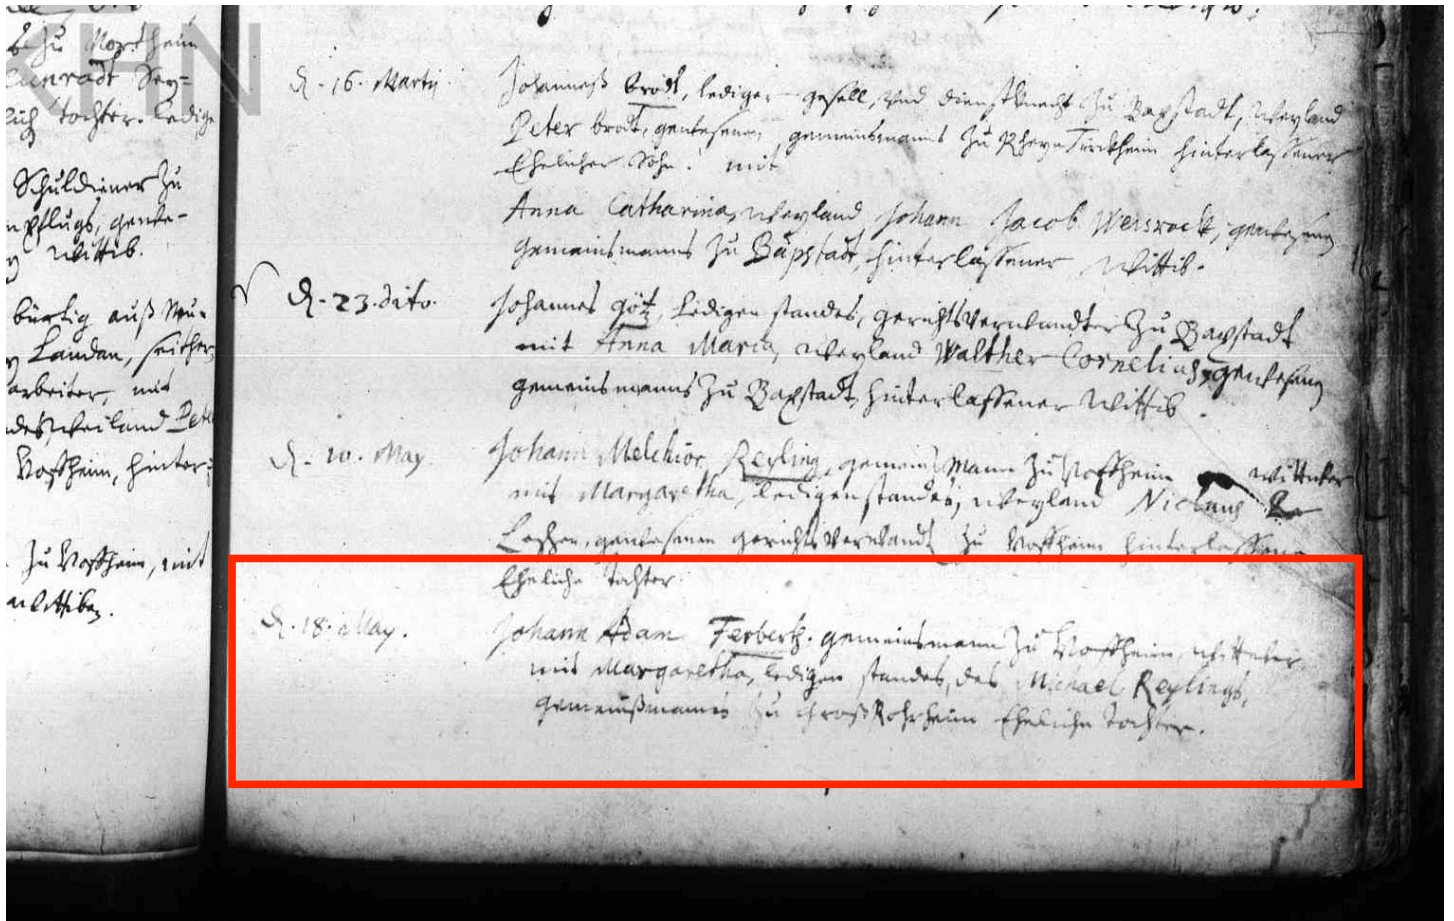 zu Mortheim
Cunradt Sey-
lich tochter. ledige
Schuldiener zu
pflugs, gewe-
Wittib.
bürtig auß Neu-
Landau, seither
arbeiter, mit
des weiland Pete
Hoffheim, hinter-
zu Hoffheim, mit
wittiben.
KHN
d. 16. Martij
Johanneß Brodt, lediger gesell, und dienstknecht zu Bapstadt, weyland
Peter Brodt, gewesenen gemeinsmanns zu RheynTürckheim hinterlassener
Ehelicher Sohn. mit
Anna Catharina, weyland Johann Jacob Weisrock, gewesenen
gemeinsmanns zu Bapstadt, hinterlassener Wittib.
d. 23. dito.
Johannes Götz, ledigen standes, gerichtsverwandter zu Bapstadt
mit Anna Maria, weyland Walther Cornelius, gewesenen
gemeinsmanns zu Bapstadt hinterlassener Wittib.
d. 10. May.
Johann Melchior Reyling, gemeinsmann zu Hoffheim wittwer
mit Margaretha, ledigen standes, weyland Niclaus
gewesenen gerichtsverwandt zu Hoffheim hinterlassene
Eheliche tochter.
d. 18. May.
Johann Adam Ferbert. gemeinsmann zu Hoffheim, wittwer
mit Margaretha, ledigen standes, des Michael Reylings,
gemeinßmannes zu GroßRohrheim Eheliche tochter.